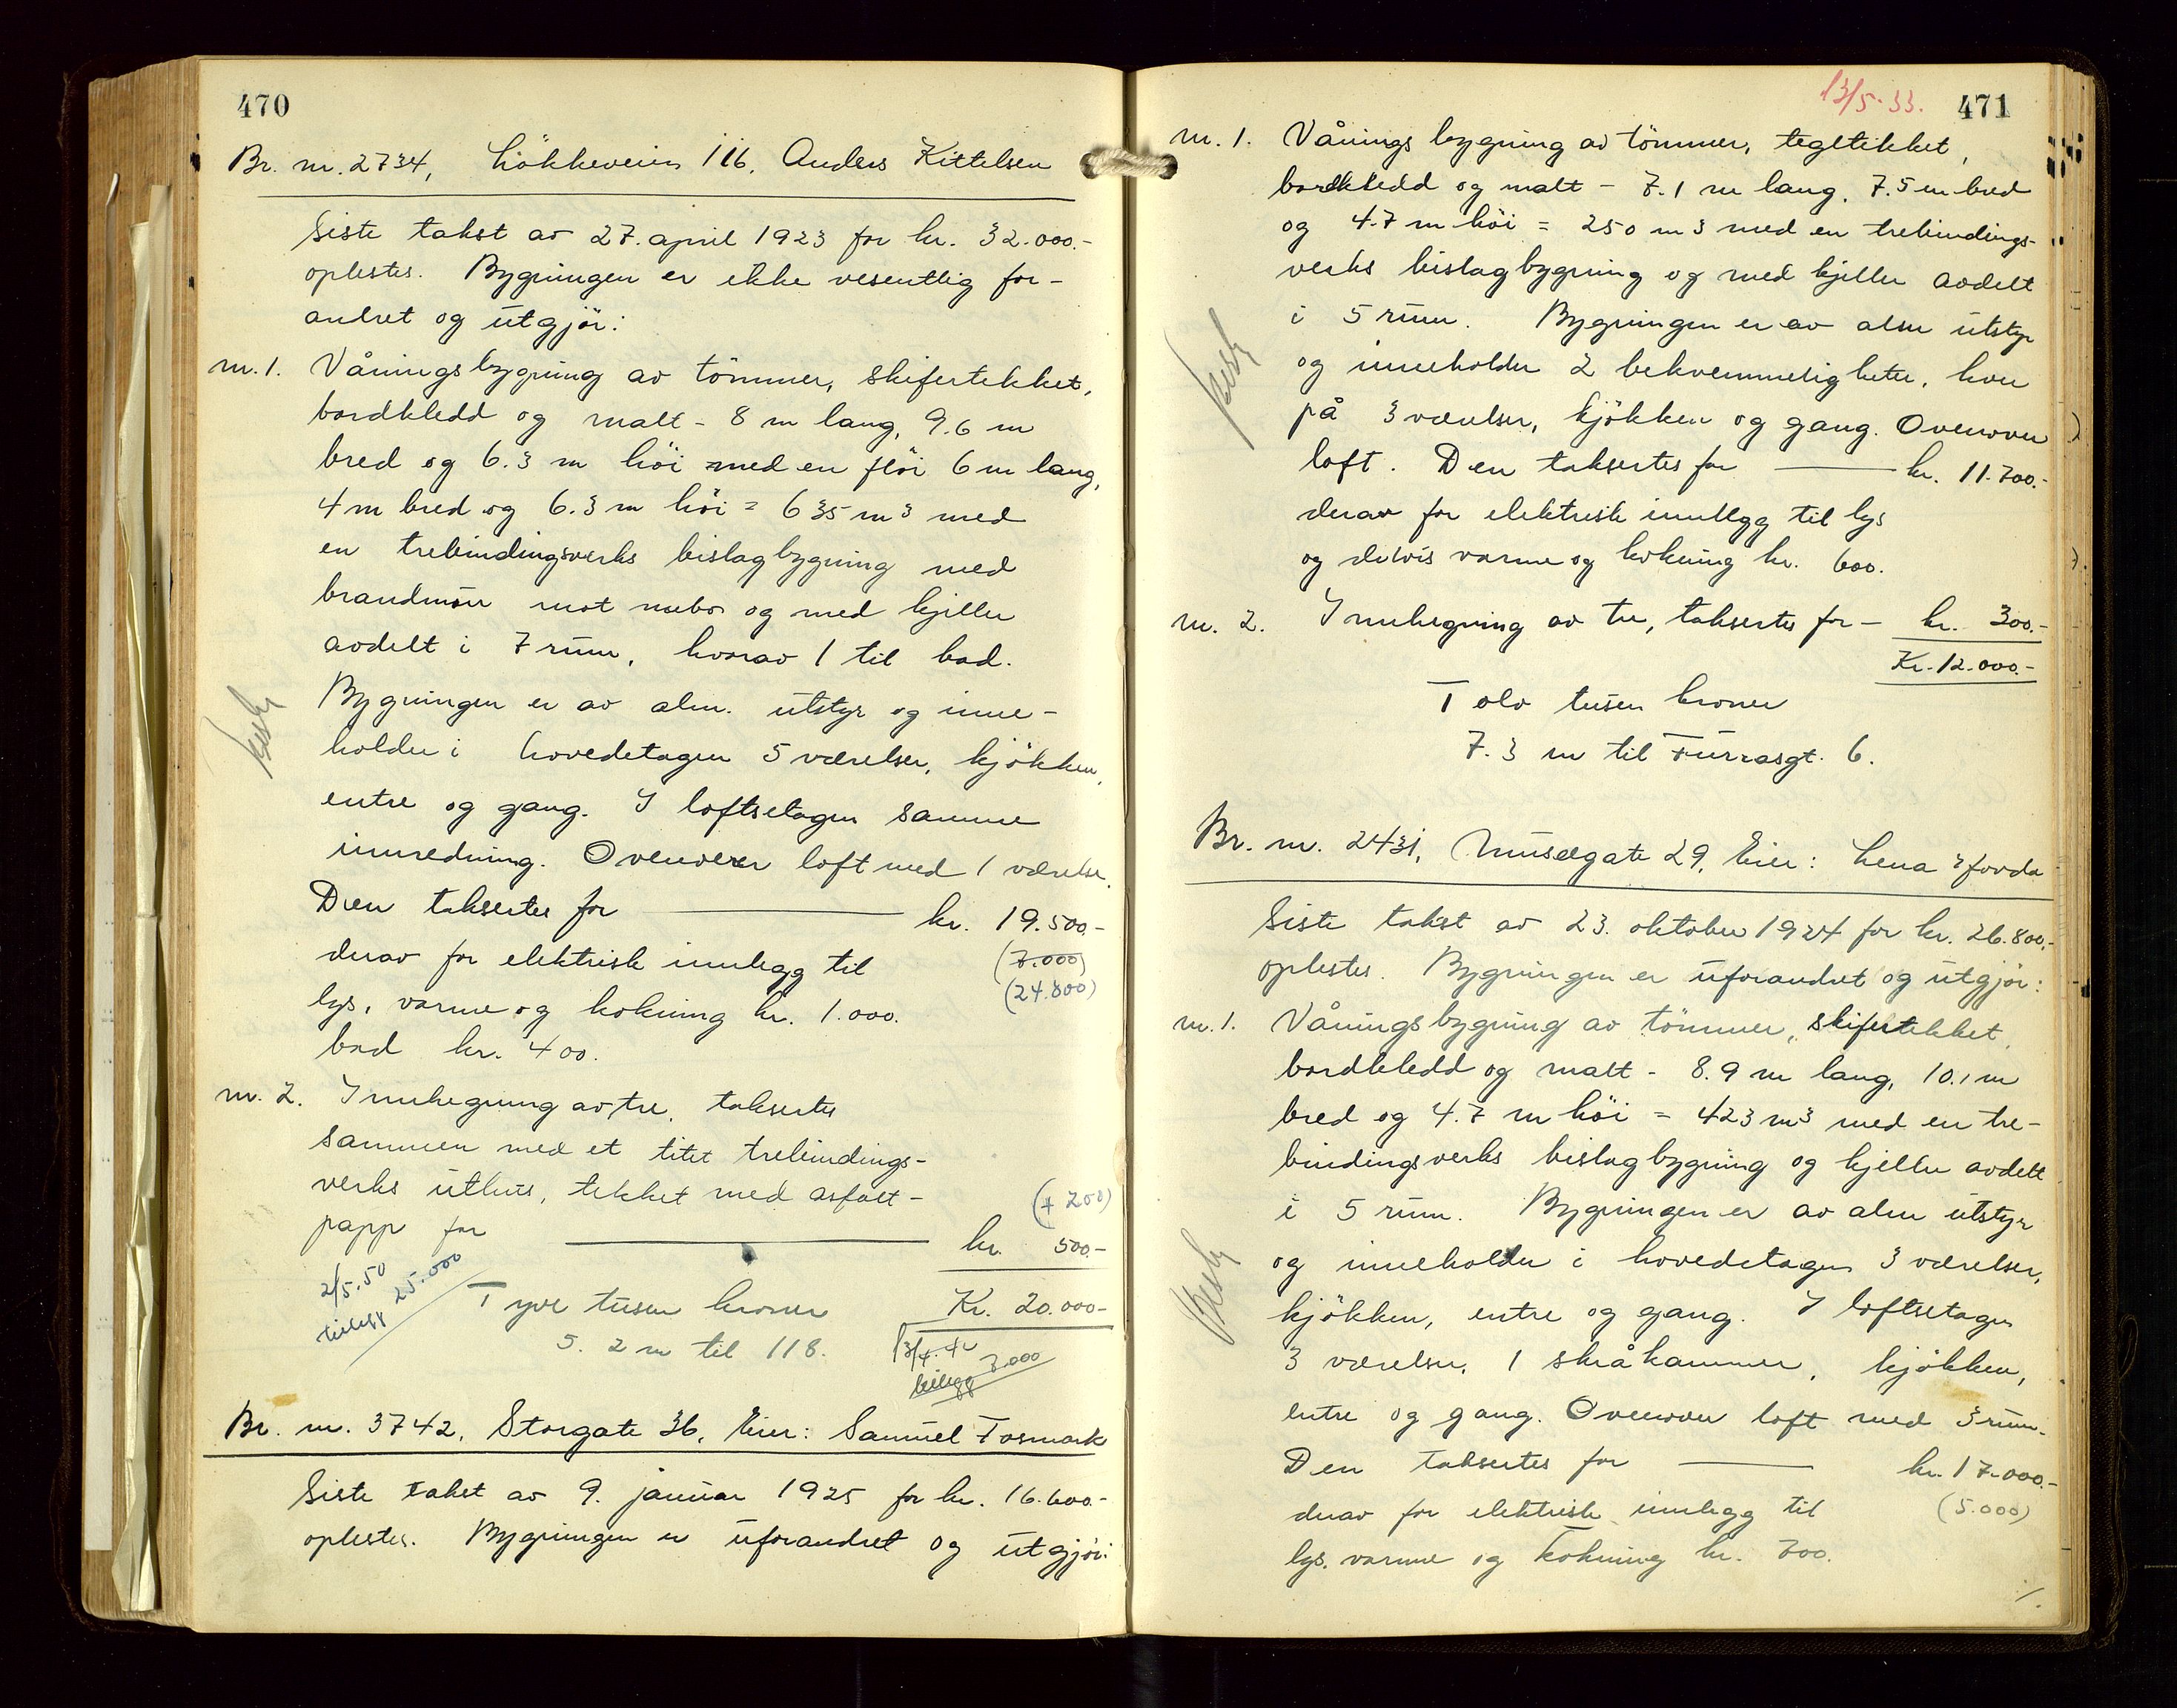 470
Br. nr. 2734, Lökkeveien 116. Anders Kittelsen
Siste takst av 27. april 1923 for kr. 32.000.-
oplestes. Bygningen er ikke vesentlig for-
andret og utgjör:
nr. 1. Våningsbygning av tömmer, skifertekket,
bordkledd og malt - 8 m lang, 9.6 m
bred og 6.3 m höi med en flöi 6 m lang,
4 m bred og 6.3 m höi = 635 m3 med
en trebindingsverks bislagbygning med
brandmur mot nabo og med kjeller
avdelt i 7 rum, hvorav 1 til bad.
Bygningen er av alm. utstyr og inne-
holder i hovedetagen 5 værelser, kjökken,
entre og gang. I loftsetagen samme
innredning. Ovenover loft med 1 værelse.
Den taksertes for kr. 19.500.-
derav for elektrisk innlegg til (7.000)
lys, varme og kokning kr. 1.000. (24.800)
bad kr. 400.
nr. 2. Innhegning av tre, taksertes
sammen med et litet trebindings-
verks uthus, tekket med asfalt- (+ 200)
papp for kr. 500.-
2/5.50
tillegg 25.000
Tyve tusen kroner Kr. 20.000-
5.2 m til 118.
13/4.40
tillegg 7.000
Br. nr. 3742, Storgate 36, Eier: Samuel Fosmark
Siste takst av 9. januar 1925 for kr. 16.600.-
oplestes. Bygningen er uforandret og utgjör:
13/5.33. 471
nr. 1. Vånings bygning av tömmer, tegltekket,
bordkledd og malt - 7.1 m lang, 7.5 m bred
og 4.7 m höi = 250 m3 med en trebindings-
verks bislagbygning og med kjeller avdelt
i 5 rum. Bygningen er av alm utstyr
og inneholder 2 bekvemmeligheter, hver
på 3 værelser, kjökken og gang. Ovenover
loft. Den taksertes for kr. 11.700.-
derav for elektrisk innlegg til lys
og delvis varme og kokning kr. 600.
nr. 2. Innhegning av tre, taksertes for - kr. 300.-
Kr. 12.000.-
Tolv tusen kroner
7.3 m til Furrasgt. 6.
Br. nr. 2431, Musegate 29, Eier: Lena
Siste takst av 23. oktober 1924 for kr. 26.800.-
oplestes. Bygningen er uforandret og utgjör:
nr. 1. Våningsbygning av tömmer, skifertekket,
bordkledd og malt - 8.9 m lang, 10.1 m
bred og 4.7 m höi = 423 m3 med en tre-
bindingsverks bislagbygning og kjeller avdelt
i 5 rum. Bygningen er av alm utstyr
og inneholder i hovedetagen 3 værelser,
kjökken, entre og gang. I loftsetagen
3 værelser, 1 skråkammer, kjökken,
entre og gang. Ovenover loft med 3 rum.
Den taksertes for kr. 17.000.-
derav for elektrisk innlegg til (5.000)
lys, varme og kokning kr. 700.
./.